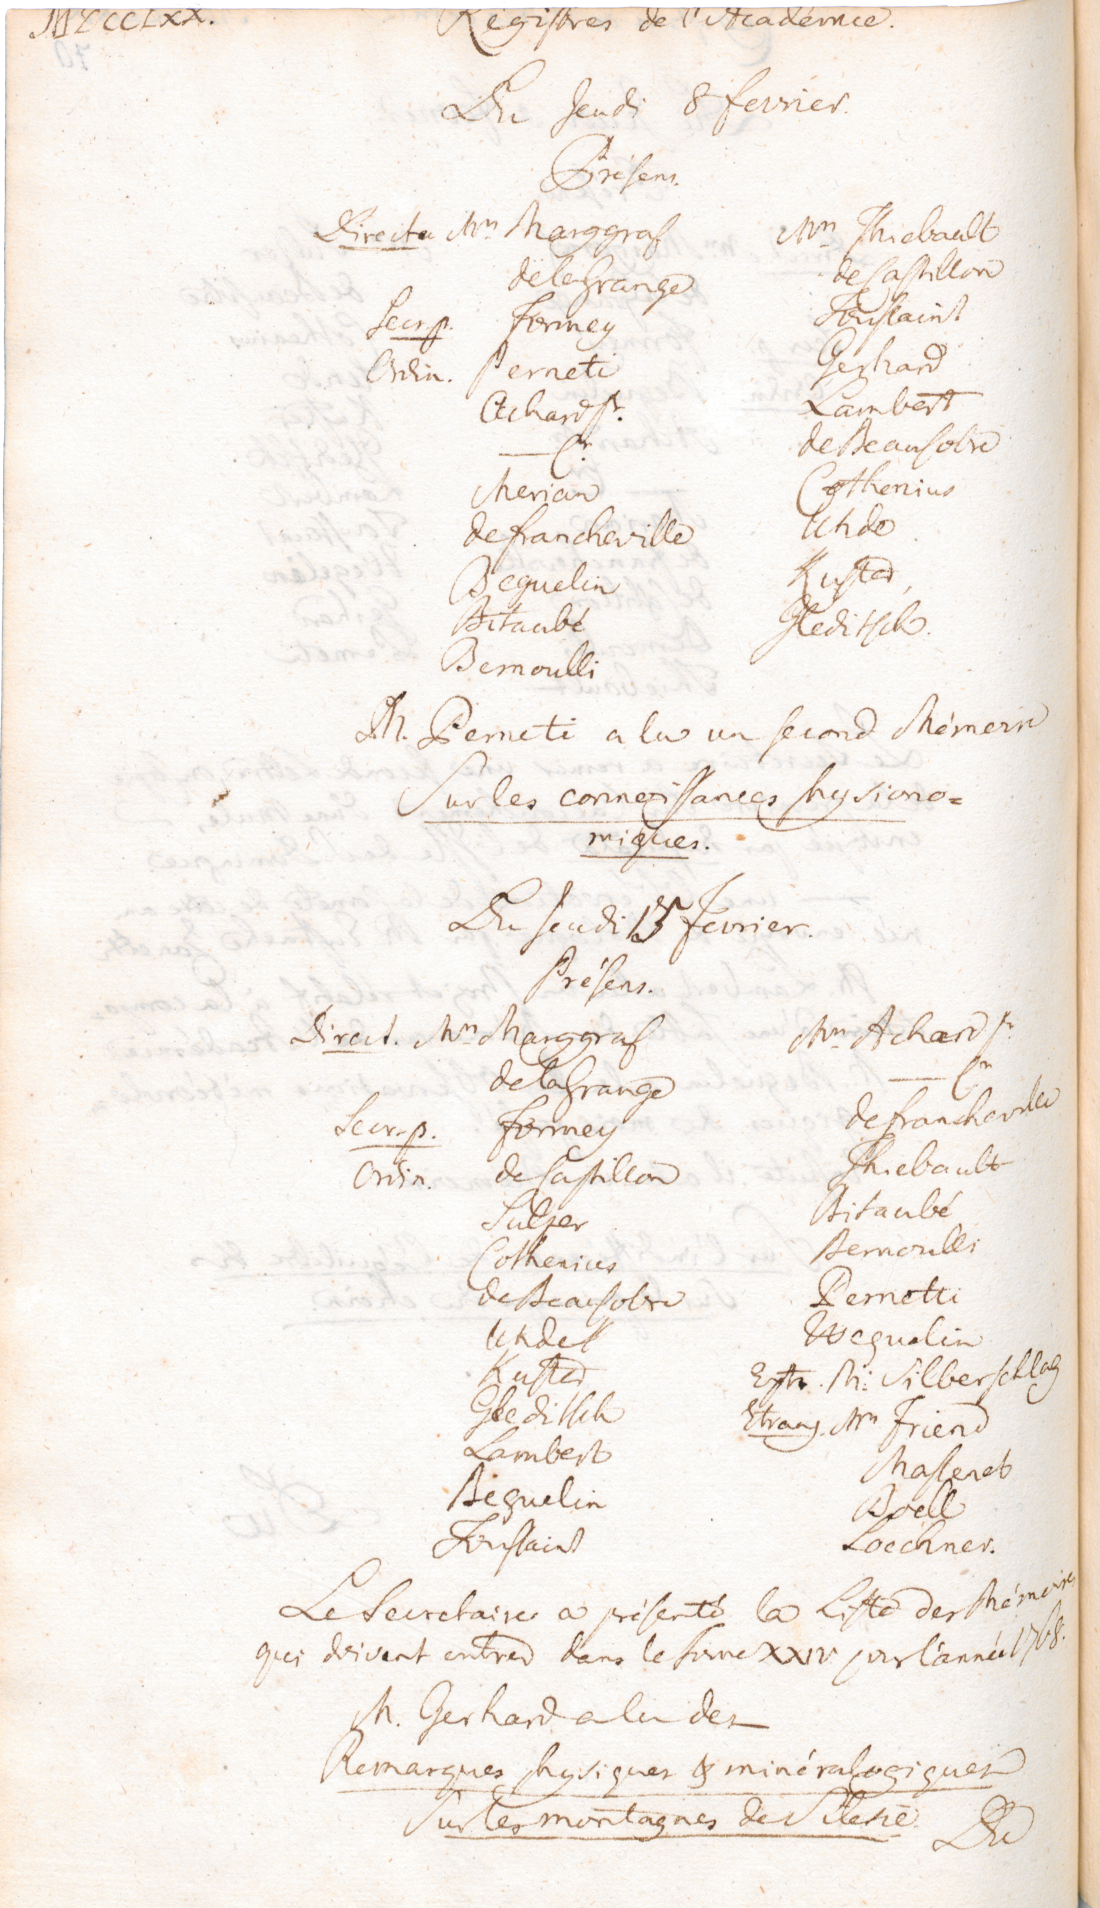 MDCCLXX.
Registres de l'Académie.
Du Jeudi 8 fevrier.
Présens.
Directr Mrs Marggraf
de la Grange
Secr. p. Formey
Ordin. Perneti
Achard Pr.
— Cr
Merian
de francheville
Beguelin
Bitaubé
Bernoulli
Mrs Thiebault
de Castillon
Toussaint
Gerhard
Lambert
de Beausobre
Cothenius
Uhde
Kuster,
Gleditsch.
M. Perneti a lu un second Mémoire
Sur les connoissances physiono=
miques.
Du Jeudi 15 Fevrier.
Présens.
Direct. Mrs Marggraf
de la Grange
Secr. p. Formey
Ordin. de Castillon
Sulzer
Cothenius
de Beausobre
Uhde
Kuster
Gleditsch
Lambert
Beguelin
Toussaint
Mrs Achard Pr.
— Cr
de francheville
Thiebault
Bitaubé
Bernoulli
Pernetti
Weguelin
Extr. M. Silberschlag
Etrang. Mrs Friend
Massenet
Boell
Loechner.
Le Secretaire a présenté la Liste des Mémoires
qui doivent entrer dans le Tome XXIV pour l'année 1768.
M. Gerhard a lu des
Remarques physiques & minéralogiques
Sur les montagnes de Silesie.
Du